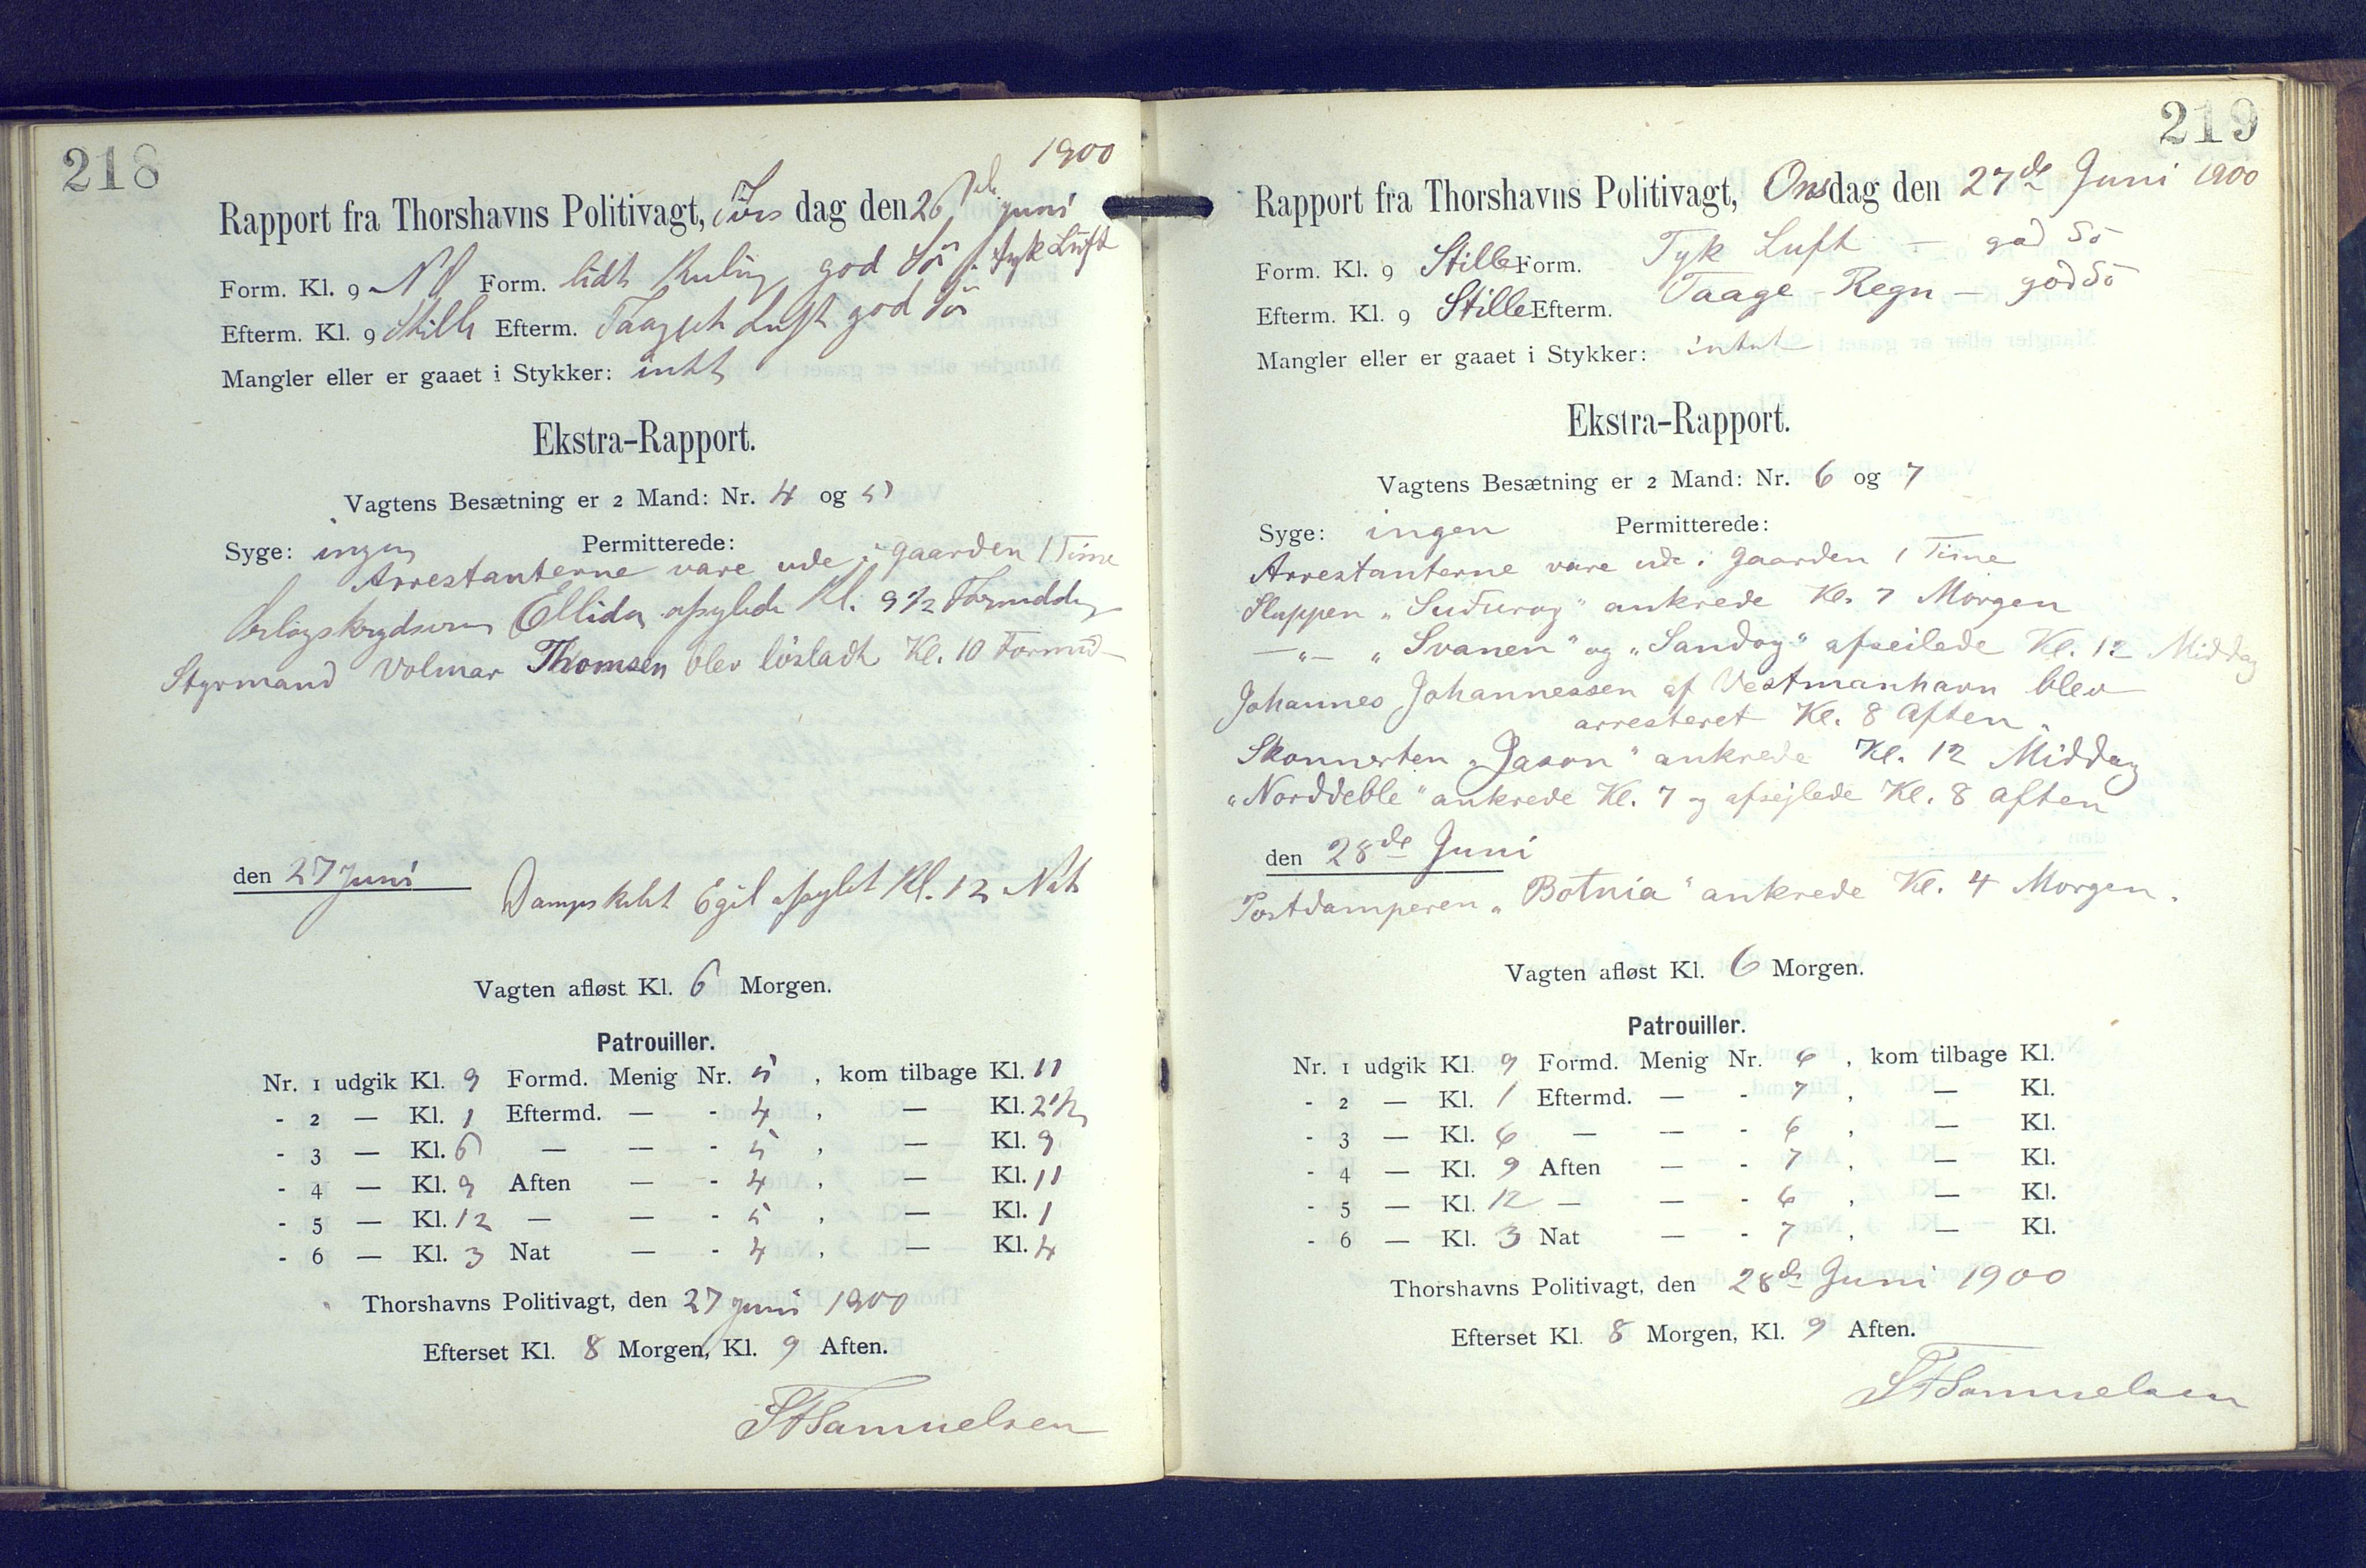 218
1900
Rapport fra Thorshavns Politivagt, Tirs dag den 26de Juni
Form. Kl. 9 NV Form. lidt Kuling god Sö tyk Luft
Efterm. Kl. 9 Stille Efterm. Taaget Luft god Sö
Mangler eller er gaaet i Stykker: intet
Ekstra-Rapport.
Vagtens Besætning er 2 Mand: Nr. 4 og 5
Syge: ingen Permitterede:
Arrestanterne vare ude i Gaarden 1 Time
Orlogskrydseren Ellida afsejlede Kl. 9 1/2 Formiddag
Styrmand Volmar Thomsen blev lösladt Kl. 10 Formid
den 27 Juni
Dampskibet Egil afsejlet Kl. 12 Nat
Vagten afløst Kl. 6 Morgen.
Patrouiller.
Nr. 1 udgik Kl. 9 Formd. Menig Nr. 5, kom tilbage Kl. 11
- 2 — Kl. 1 Eftermd. — - 4, — Kl. 2 1/2
- 3 — Kl. 6 — — - 5, — Kl. 9
- 4 — Kl. 9 Aften — - 4, — Kl. 11
- 5 — Kl. 12 — — - 5, — Kl. 1
- 6 — Kl. 3 Nat — - 4, — Kl. 4
Thorshavns Politivagt, den 27 Juni 1900
Efterset Kl. 8 Morgen, Kl. 9 Aften.
Samuelsen
219
Rapport fra Thorshavns Politivagt, Onsdag den 27de Juni 1900
Form. Kl. 9 Stille Form. Tyk Luft — god Sö
Efterm. Kl. 9 Stille Efterm. Taage - Regn — god Sö
Mangler eller er gaaet i Stykker: intet
Ekstra-Rapport.
Vagtens Besætning er 2 Mand: Nr. 6 og 7
Syge: ingen Permitterede:
Arrestanterne vare ude i Gaarden 1 Time
Sluppen „Suduroy" ankrede Kl. 7 Morgen
—„— „Svanen" og „Sandoy" afseilede Kl. 12 Middag
Johannes Johannessen af Vestmanhavn blev
arresteret Kl. 8 Aften.
Skonnerten „Jason" ankrede Kl. 12 Middag
„Norddeble" ankrede Kl. 7 og afsejlede Kl. 8 Aften
den 28de Juni
Postdamperen „Botnia" ankrede Kl. 4 Morgen.
Vagten afløst Kl. 6 Morgen.
Patrouiller.
Nr. 1 udgik Kl. 9 Formd. Menig Nr. 6, kom tilbage Kl.
- 2 — Kl. 1 Eftermd. — - 7, — Kl.
- 3 — Kl. 6 — — - 6, — Kl.
- 4 — Kl. 9 Aften — - 7, — Kl.
- 5 — Kl. 12 — — - 6, — Kl.
- 6 — Kl. 3 Nat — - 7, — Kl.
Thorshavns Politivagt, den 28de Juni 1900
Efterset Kl. 8 Morgen, Kl. 9 Aften.
Samuelsen